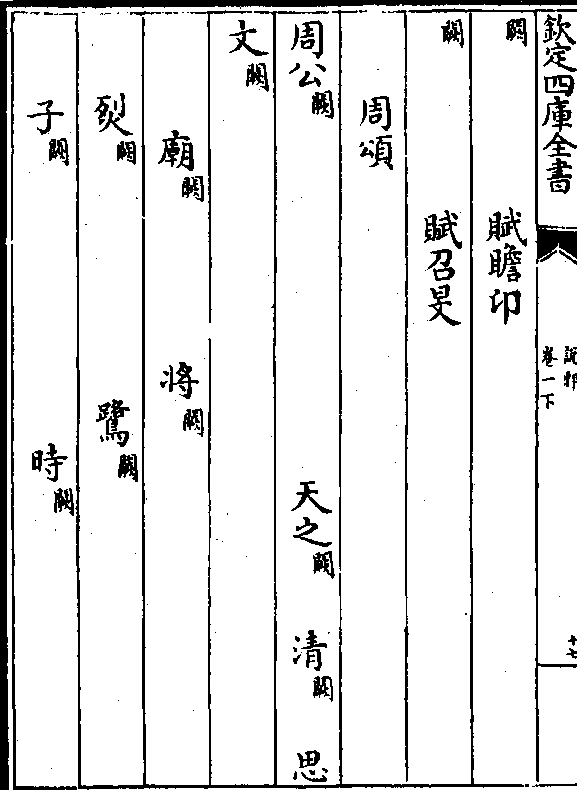 欽定四庫全書
說郛
卷一下
十七
闕 賦瞻卬
闕 賦召旻
周頌
周公闕 天之闕 清闕 思
文闕
廟闕 將闕
烈闕 鷺闕
子闕 時闕